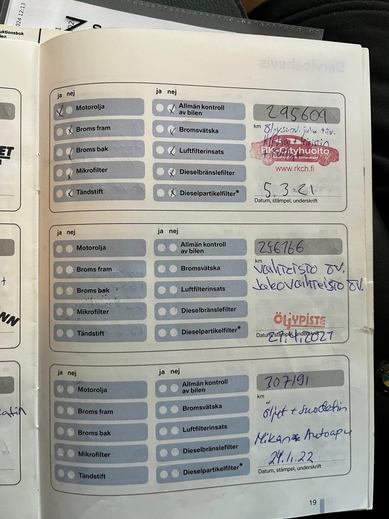 ja nej ja nej
Motorolja
Allmän kontroll
av bilen
295609
km
Broms fram
Bromsvätska
Broms bak
Luftfilterinsats
RK-Cityhuolto
www.rkch.fi
Mikrofilter
Dieselbränslefilter
Tändstift
Dieselpartikelfilter*
5.3-21
Datum, stämpel, underskrift
ja nej ja nej
Motorolja
Allmän kontroll
av bilen
256766
km
Broms fram
Bromsvätska
Vaihteisto öv.
Broms bak
Luftfilterinsats
Jakovaihteisto öv.
Mikrofilter
Dieselbränslefilter
ÖLJYPISTE
Tändstift
Dieselpartikelfilter*
27.4.2021
ja nej ja nej
Motorolja
Allmän kontroll
av bilen
307191
km
Broms fram
Bromsvätska
öljyt + suodatin
Broms bak
Luftfilterinsats
Mikan Autoapu
Mikrofilter
Dieselbränslefilter
29.11.22
Datum, stämpel, underskrift
Tändstift
Dieselpartikelfilter*
19